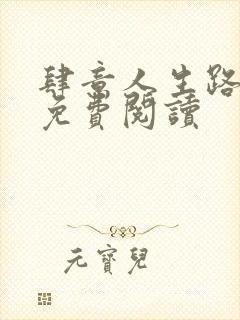 肆意人生路
免費閱讀
元寶兒